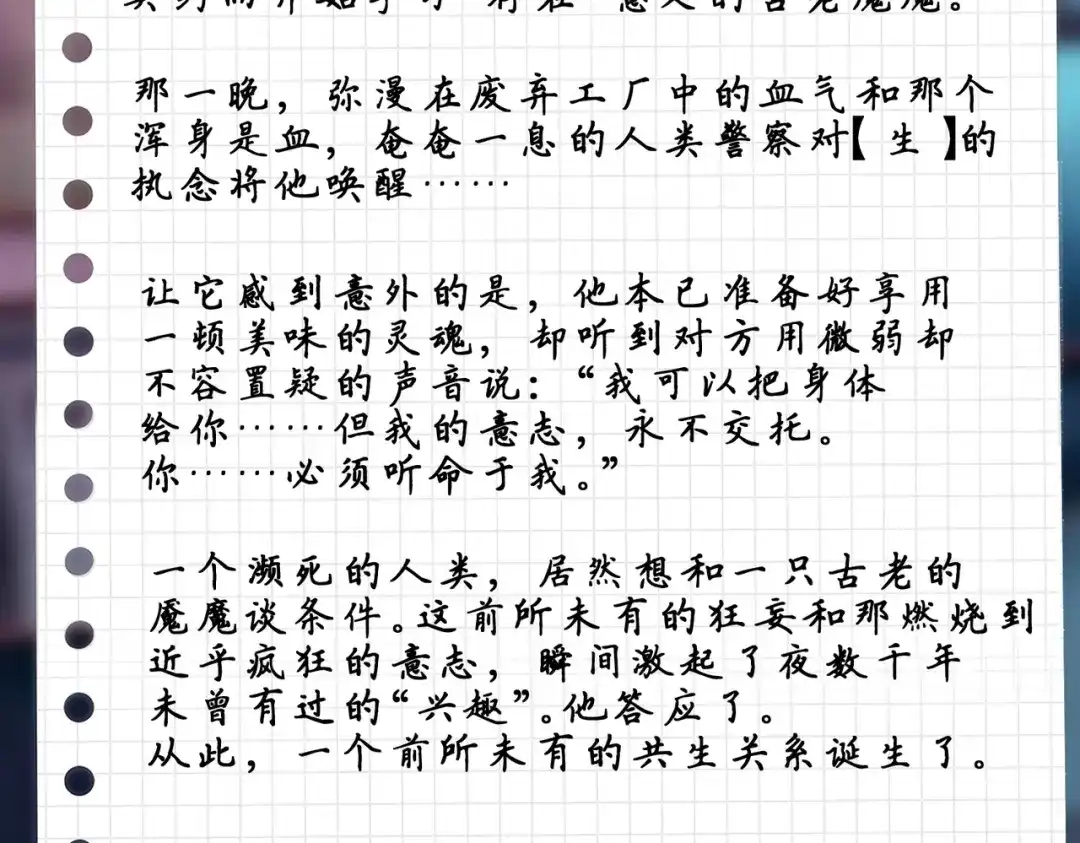 那一晚，弥漫在废弃工厂中的血气和那个
浑身是血，奄奄一息的人类警察对【生】的
执念将他唤醒……
让它感到意外的是，他本已准备好享用
一顿美味的灵魂，却听到对方用微弱却
不容置疑的声音说：“我可以把身体
给你……但我的意志，永不交托。
你……必须听命于我。”
一个濒死的人类，居然想和一只古老的
魇魔谈条件。这前所未有的狂妄和那燃烧到
近乎疯狂的意志，瞬间激起了夜数千年
未曾有过的“兴趣”。他答应了。
从此，一个前所未有的共生关系诞生了。